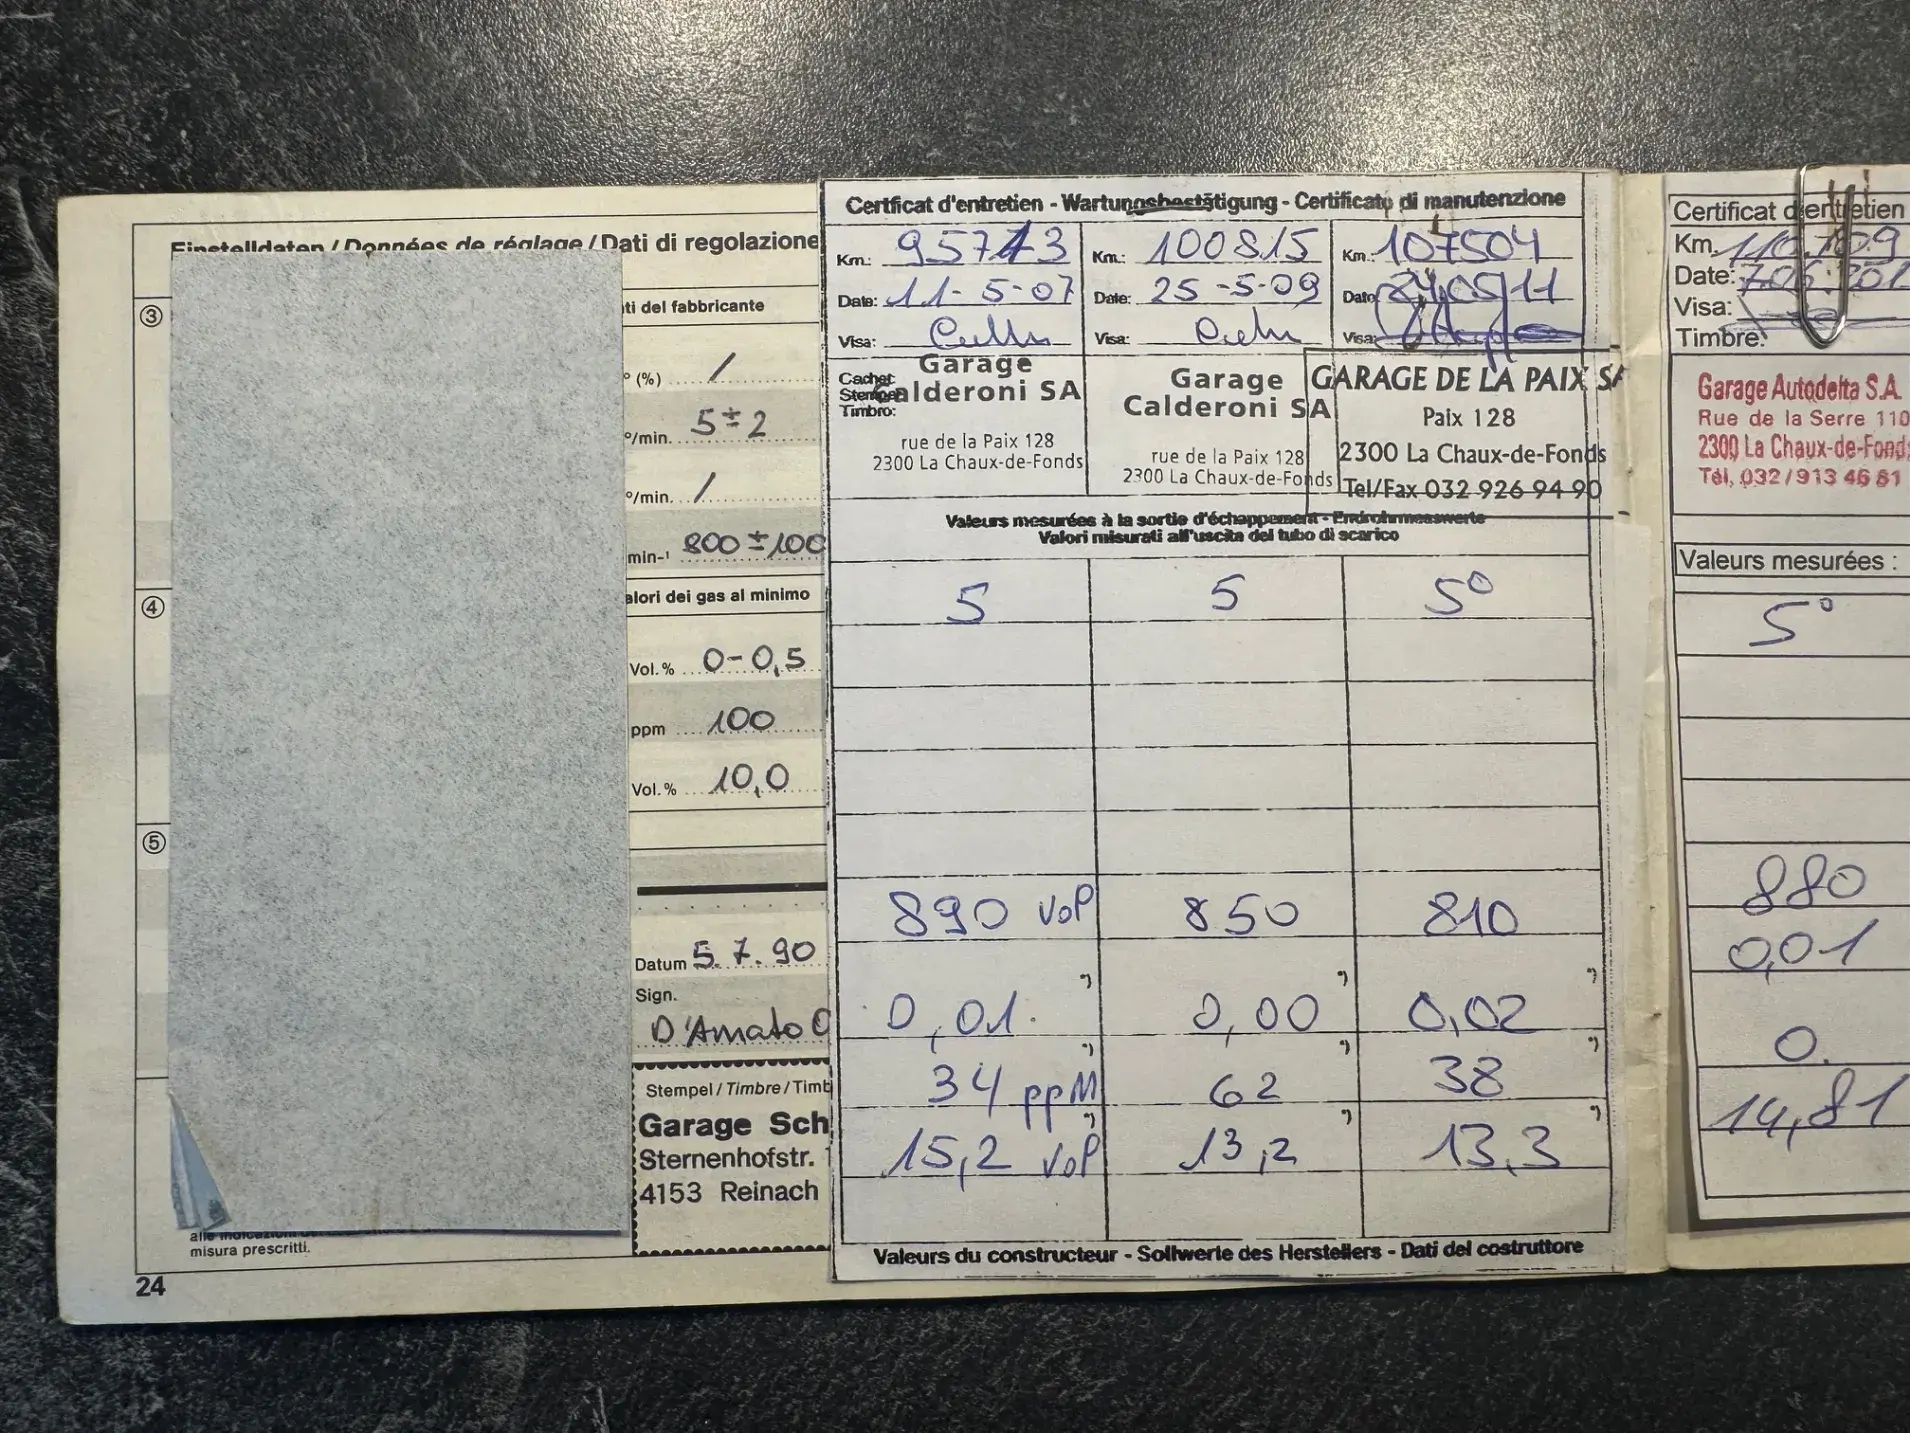 Einstelldaten / Données de réglage / Dati di regolazione
③
ti del fabbricante
° (%) /
°/min. 5 ± 2
°/min. /
min-¹ 800 ± 100
④
alori dei gas al minimo
Vol.% 0-0,5
ppm 100
Vol.% 10,0
⑤
Datum 5.7.90
Sign.
D'Amato
Stempel / Timbre / Timb
Garage Sch
Sternenhofstr.
4153 Reinach
misura prescritti.
24
Certficat d'entretien - Wartungsbestätigung - Certificato di manutenzione
Km.: 95773 Km.: 100815 Km.: 107504
Date: 11-5-07 Date: 25-5-09 Date /05/11
Visa: Visa: Visa:
Cachet
Stempel
Timbro:
Garage
Calderoni SA
rue de la Paix 128
2300 La Chaux-de-Fonds
Garage
Calderoni SA
rue de la Paix 128
2300 La Chaux-de-Fonds
GARAGE DE LA PAIX SA
Paix 128
2300 La Chaux-de-Fonds
Tel/Fax 032 926 94 90
Valeurs mesurées à la sortie d'échappement - Endrohrmesswerte
Valori misurati all'uscita del tubo di scarico
5 5 5°
890 Vol 850 810
0,01. 0,00 0,02
34 ppM 62 38
15,2 Vol 13,2 13,3
Valeurs du constructeur - Sollwerte des Herstellers - Dati del costruttore
Certificat d'entretien
Km.
Date:
Visa:
Timbre:
Garage Autodelta S.A.
Rue de la Serre 110
2300 La Chaux-de-Fonds
Tél. 032/913 46 81
Valeurs mesurées :
5°
880
0,01
0.
14,81